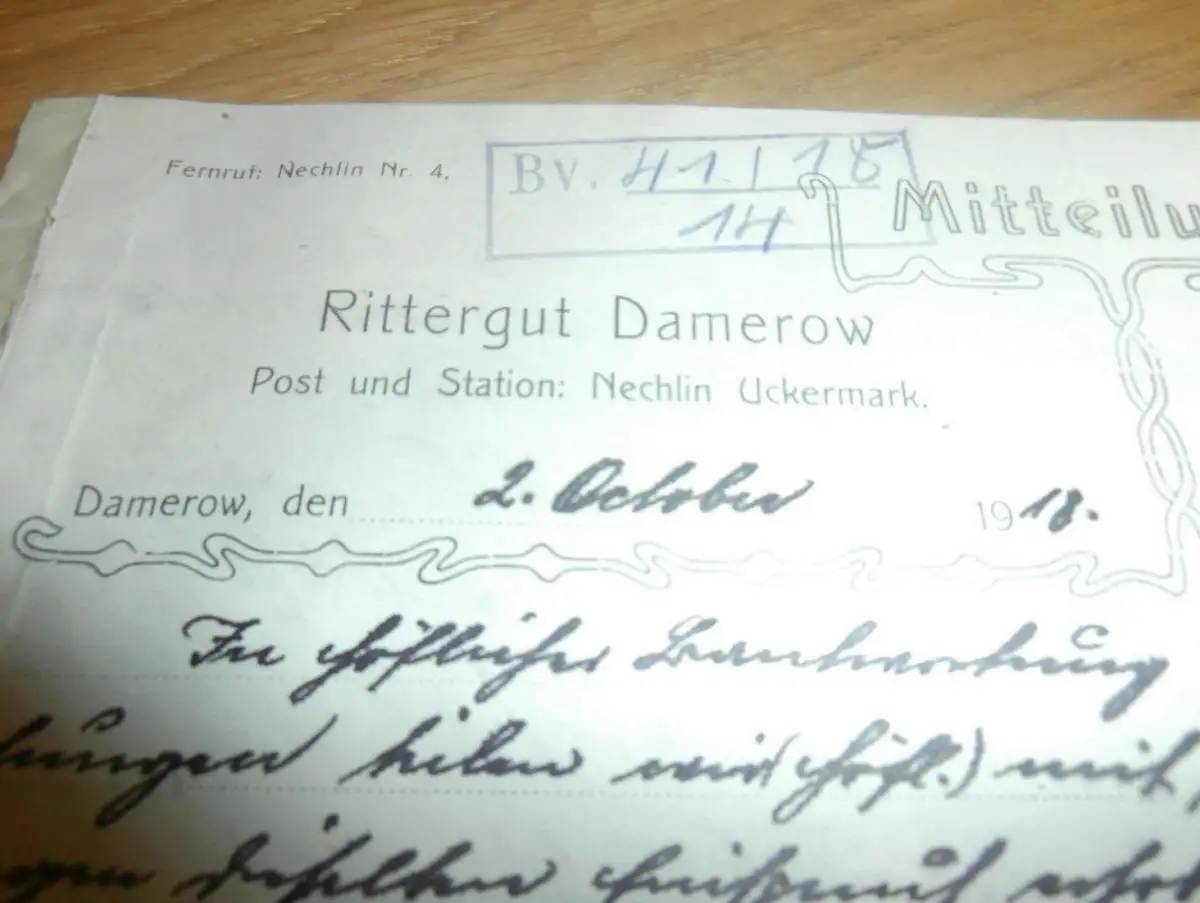 Fernruf: Nechlin Nr. 4.
Bv. 41. / 18
14
Mitteilu
Rittergut Damerow
Post und Station: Nechlin Uckermark.
Damerow, den 2. October 1918.
In höflicher Beantwortung
teilen wir (höfl.) mit,
dieselben